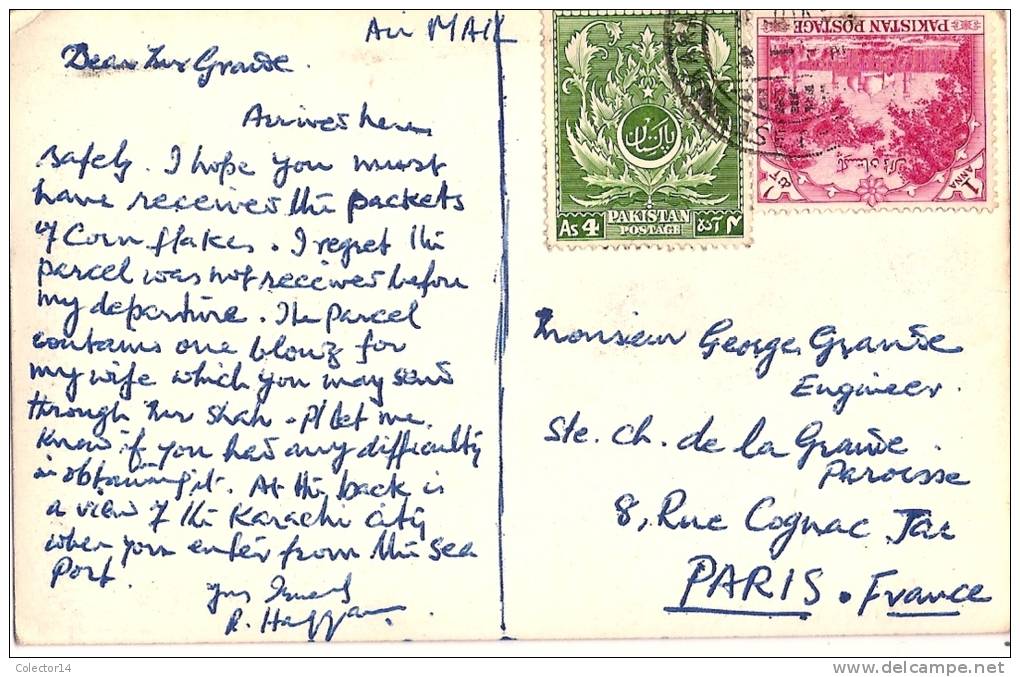 Air MAIL
Dear Mr Grande.
Arrived here
safely. I hope you must
have received the packets
of Corn flakes. I regret the
parcel was not received before
my departure. The Parcel
contains one blouz for
my wife which you may send
through Mr Shah. Pl let me
know if you had any difficulty
in obtaining it. At the back is
a view of the Karachi city
when you enter from the sea
Port.
R.
پاکستان
PAKISTAN
As 4 POSTAGE
PAKISTAN POSTAGE
1 ANNA
Monsieur George Grande
Engineer.
Ste. Ch. de la Grande
Paroisse
8, Rue Cognac Jac
PARIS. France
Colector14
www.delcampe.net